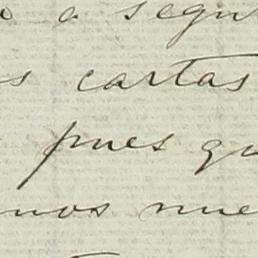 o a segu
s cartas
pues qu
mos nue